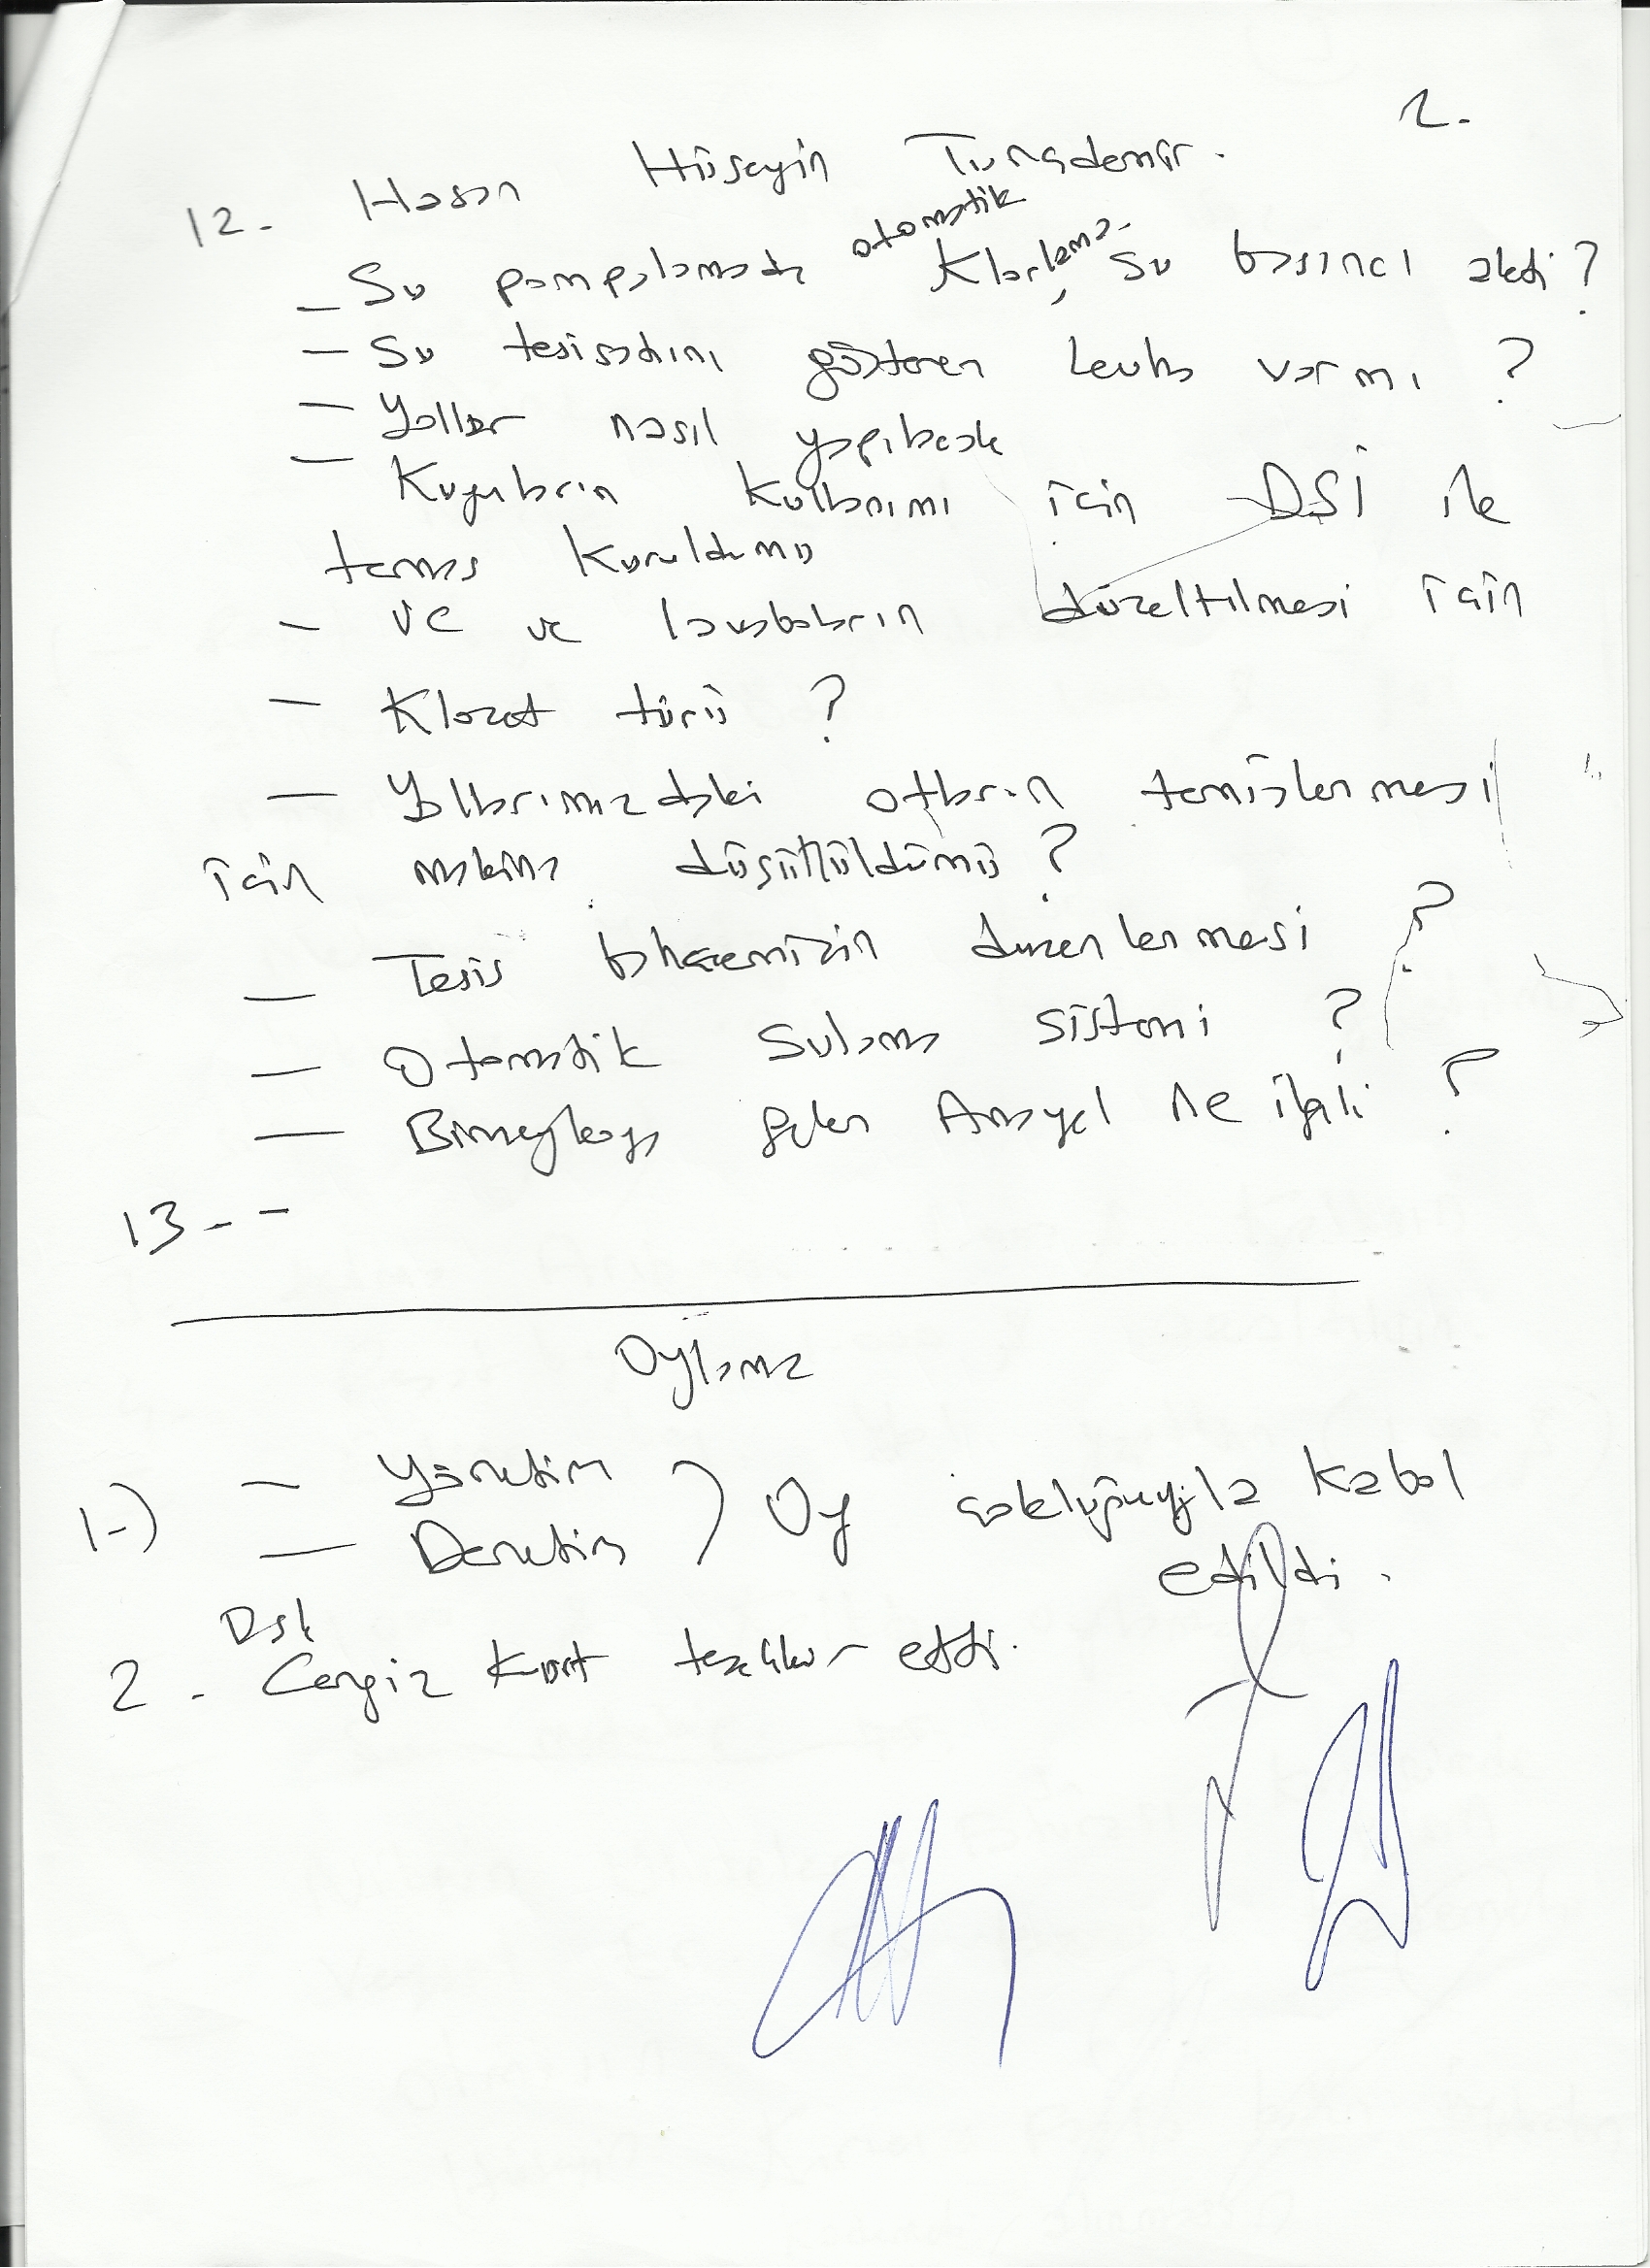 2.
12. Hasan Hüseyin Tunçdemir.
– Su pompalamada otomatik Klorlama, Su basıncı aleti?
– Su tesisatını gösteren levha varmı ?
– Yollar nasıl yapılacak
– Kuyuların kullanımı için DSİ ile
temas kuruldumu
– VC ve lavaboların düzeltilmesi için
– Klozet türü ?
– Yollarımızdaki otların temizlenmesi
için makina düşünüldümü ?
– Tesis bahçemizin duzenlenmesi ?
– Otomatik Sulama sistemi ?
– gelen ile ilgili ?
13 - -
Oylama
1-) – Yönetim ) Oy çokluğuyla kabul
– Denetim edildi.
2 . Cengiz Kurt teşekkür etti.